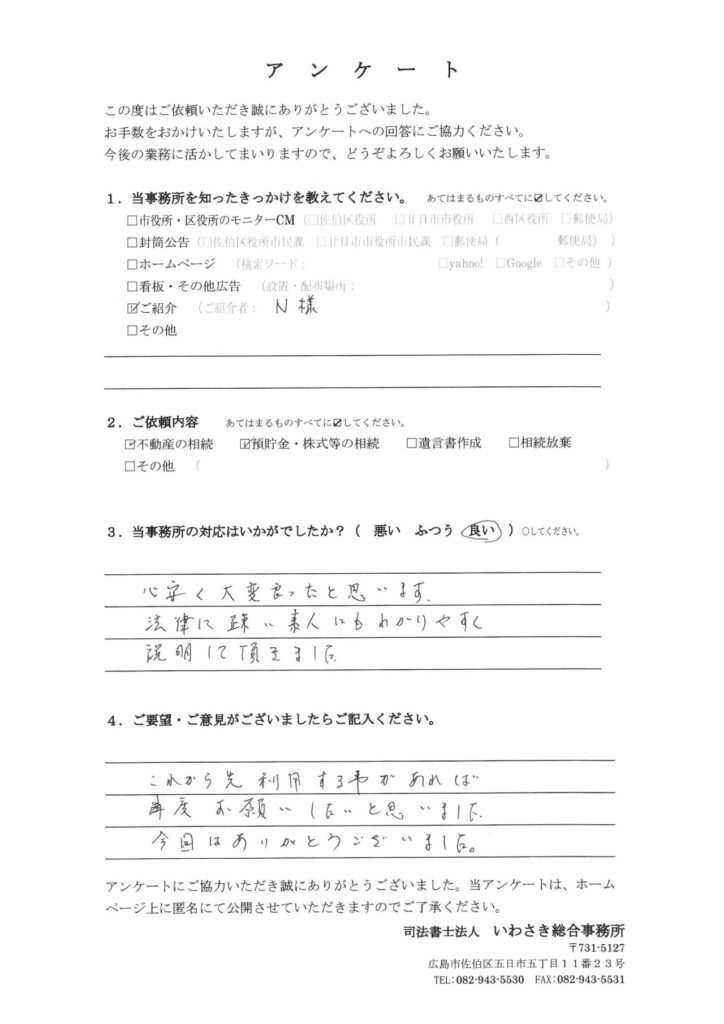 アンケート
この度はご依頼いただき誠にありがとうございました。
お手数をおかけいたしますが、アンケートへの回答にご協力ください。
今後の業務に活かしてまいりますので、どうぞよろしくお願いいたします。
1．当事務所を知ったきっかけを教えてください。 あてはまるものすべてに☑してください。
□市役所・区役所のモニターCM（□佐伯区役所 □廿日市市役所 □西区役所 □郵便局）
□封筒公告（□佐伯区役所市民課 □廿日市市役所市民課 □郵便局（ 郵便局））
□ホームページ （検索ワード： □yahoo! □Google □その他）
□看板・その他広告（設置・配布場所： ）
☑ご紹介 （ご紹介者： N様 ）
□その他
2．ご依頼内容 あてはまるものすべてに☑してください。
☑不動産の相続 ☑預貯金・株式等の相続 □遺言書作成 □相続放棄
□その他（ ）
3．当事務所の対応はいかがでしたか？（ 悪い ふつう 良い ）○してください。
心安く大変良ったと思います。
法律に疎い素人にもわかりやすく
説明して頂きました。
4．ご要望・ご意見がございましたらご記入ください。
これから先利用する事があれば
再度お願いしたいと思いました。
今回はありがとうございました。
アンケートにご協力いただき誠にありがとうございました。当アンケートは、ホーム
ページ上に匿名にて公開させていただきますのでご了承ください。
司法書士法人 いわさき総合事務所
〒731-5127
広島市佐伯区五日市五丁目１１番２３号
TEL:082-943-5530 FAX:082-943-5531